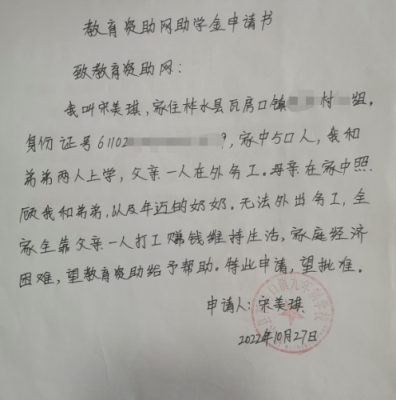 教育资助网助学金申请书
致教育资助网：
我叫宋美琪，家住柞水县瓦房口镇 村 组，
身份证号61102 9，家中5口人，我和
弟弟两人上学，父亲一人在外务工。母亲在家中照
顾我和弟弟，以及年迈的奶奶。无法外出务工，全
家全靠父亲一人打工赚钱维持生活，家庭经济
困难，望教育资助给予帮助。特此申请，望批准。
申请人：宋美琪
2022年10月27日